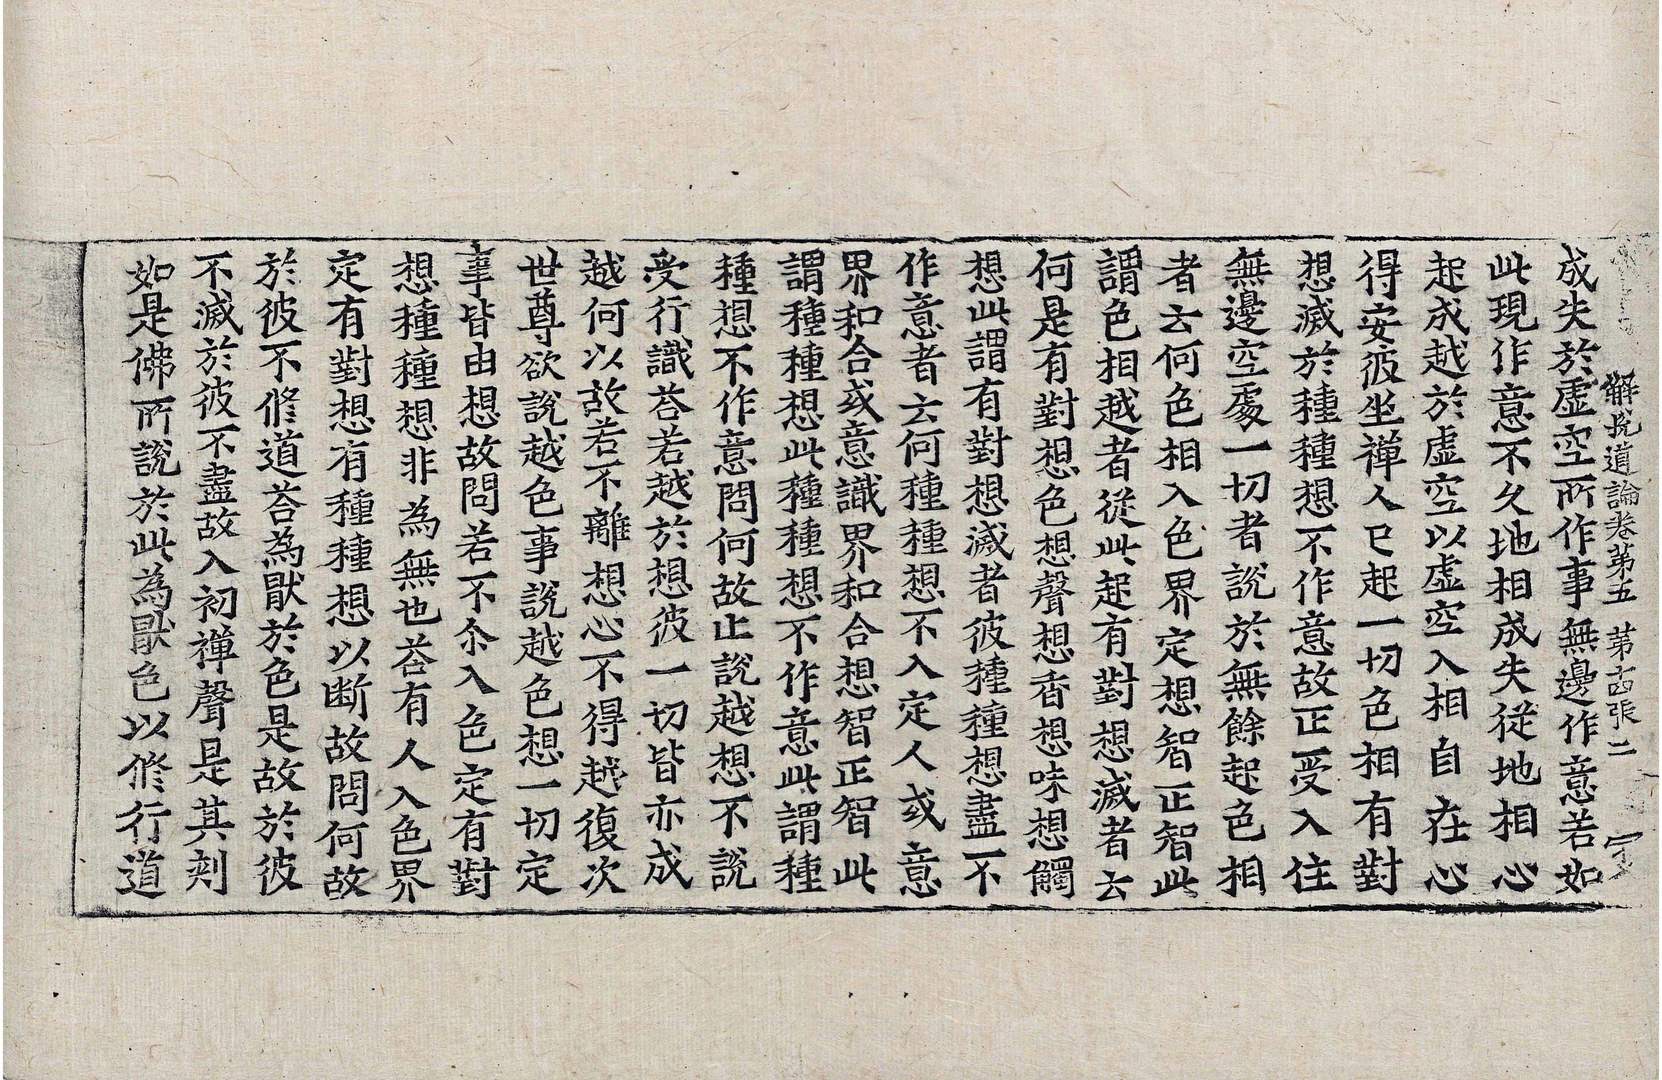 解脫道論卷第五 第十四張
成失於虛空所作事無邊作意若如
此現作意不久地相成失從地相心
起成越於虛空以虛空入相自在心
得安彼坐禪人已起一切色相有對
想滅於種種想不作意故正受入住
無邊空處一切者說於無餘起色相
者云何色相入色界定想智正智此
謂色相越者從此起有對想滅者云
何是有對想色想聲想香想味想觸
想此謂有對想滅者彼種種想盡不
作意者云何種種想不入定人或意
界和合或意識界和合想智正智此
謂種種想此種種想不作意此謂種
種想不作意問何故止說越想不說
受行識荅若越於想彼一切皆亦成
越何以故若不離想心不得越復次
世尊欲說越色事說越色想一切定
事皆由想故問若不尒入色定有對
想種種想非為無也荅有人入色界
定有對想有種種想以斷故問何故
於彼不修道荅為猒於色是故於彼
不滅於彼不盡故入初禪聲是其刾
如是佛所說於此為猒色以修行道